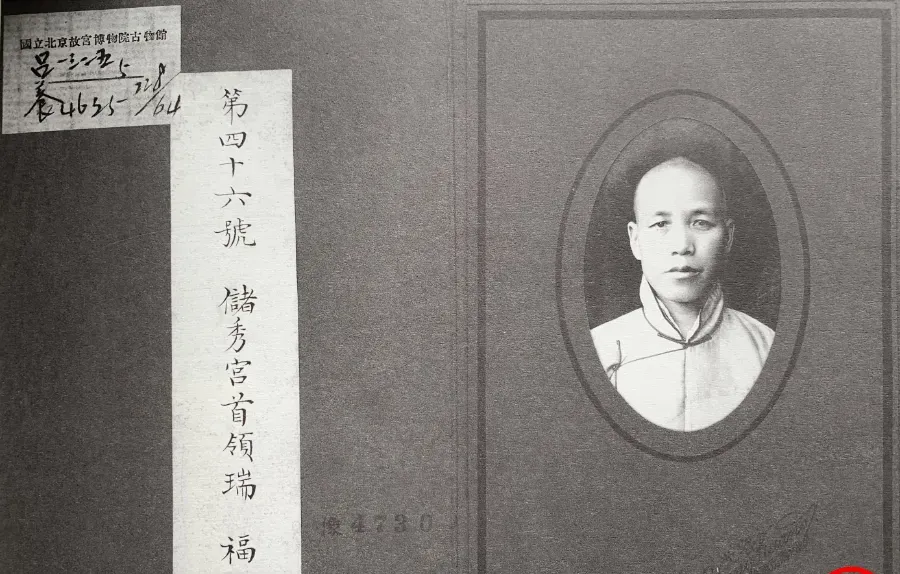 國立北京故宮博物院古物館
呂一三一五
5
養4635
728/64
第四十六號 儲秀宮首領瑞 福
像4730